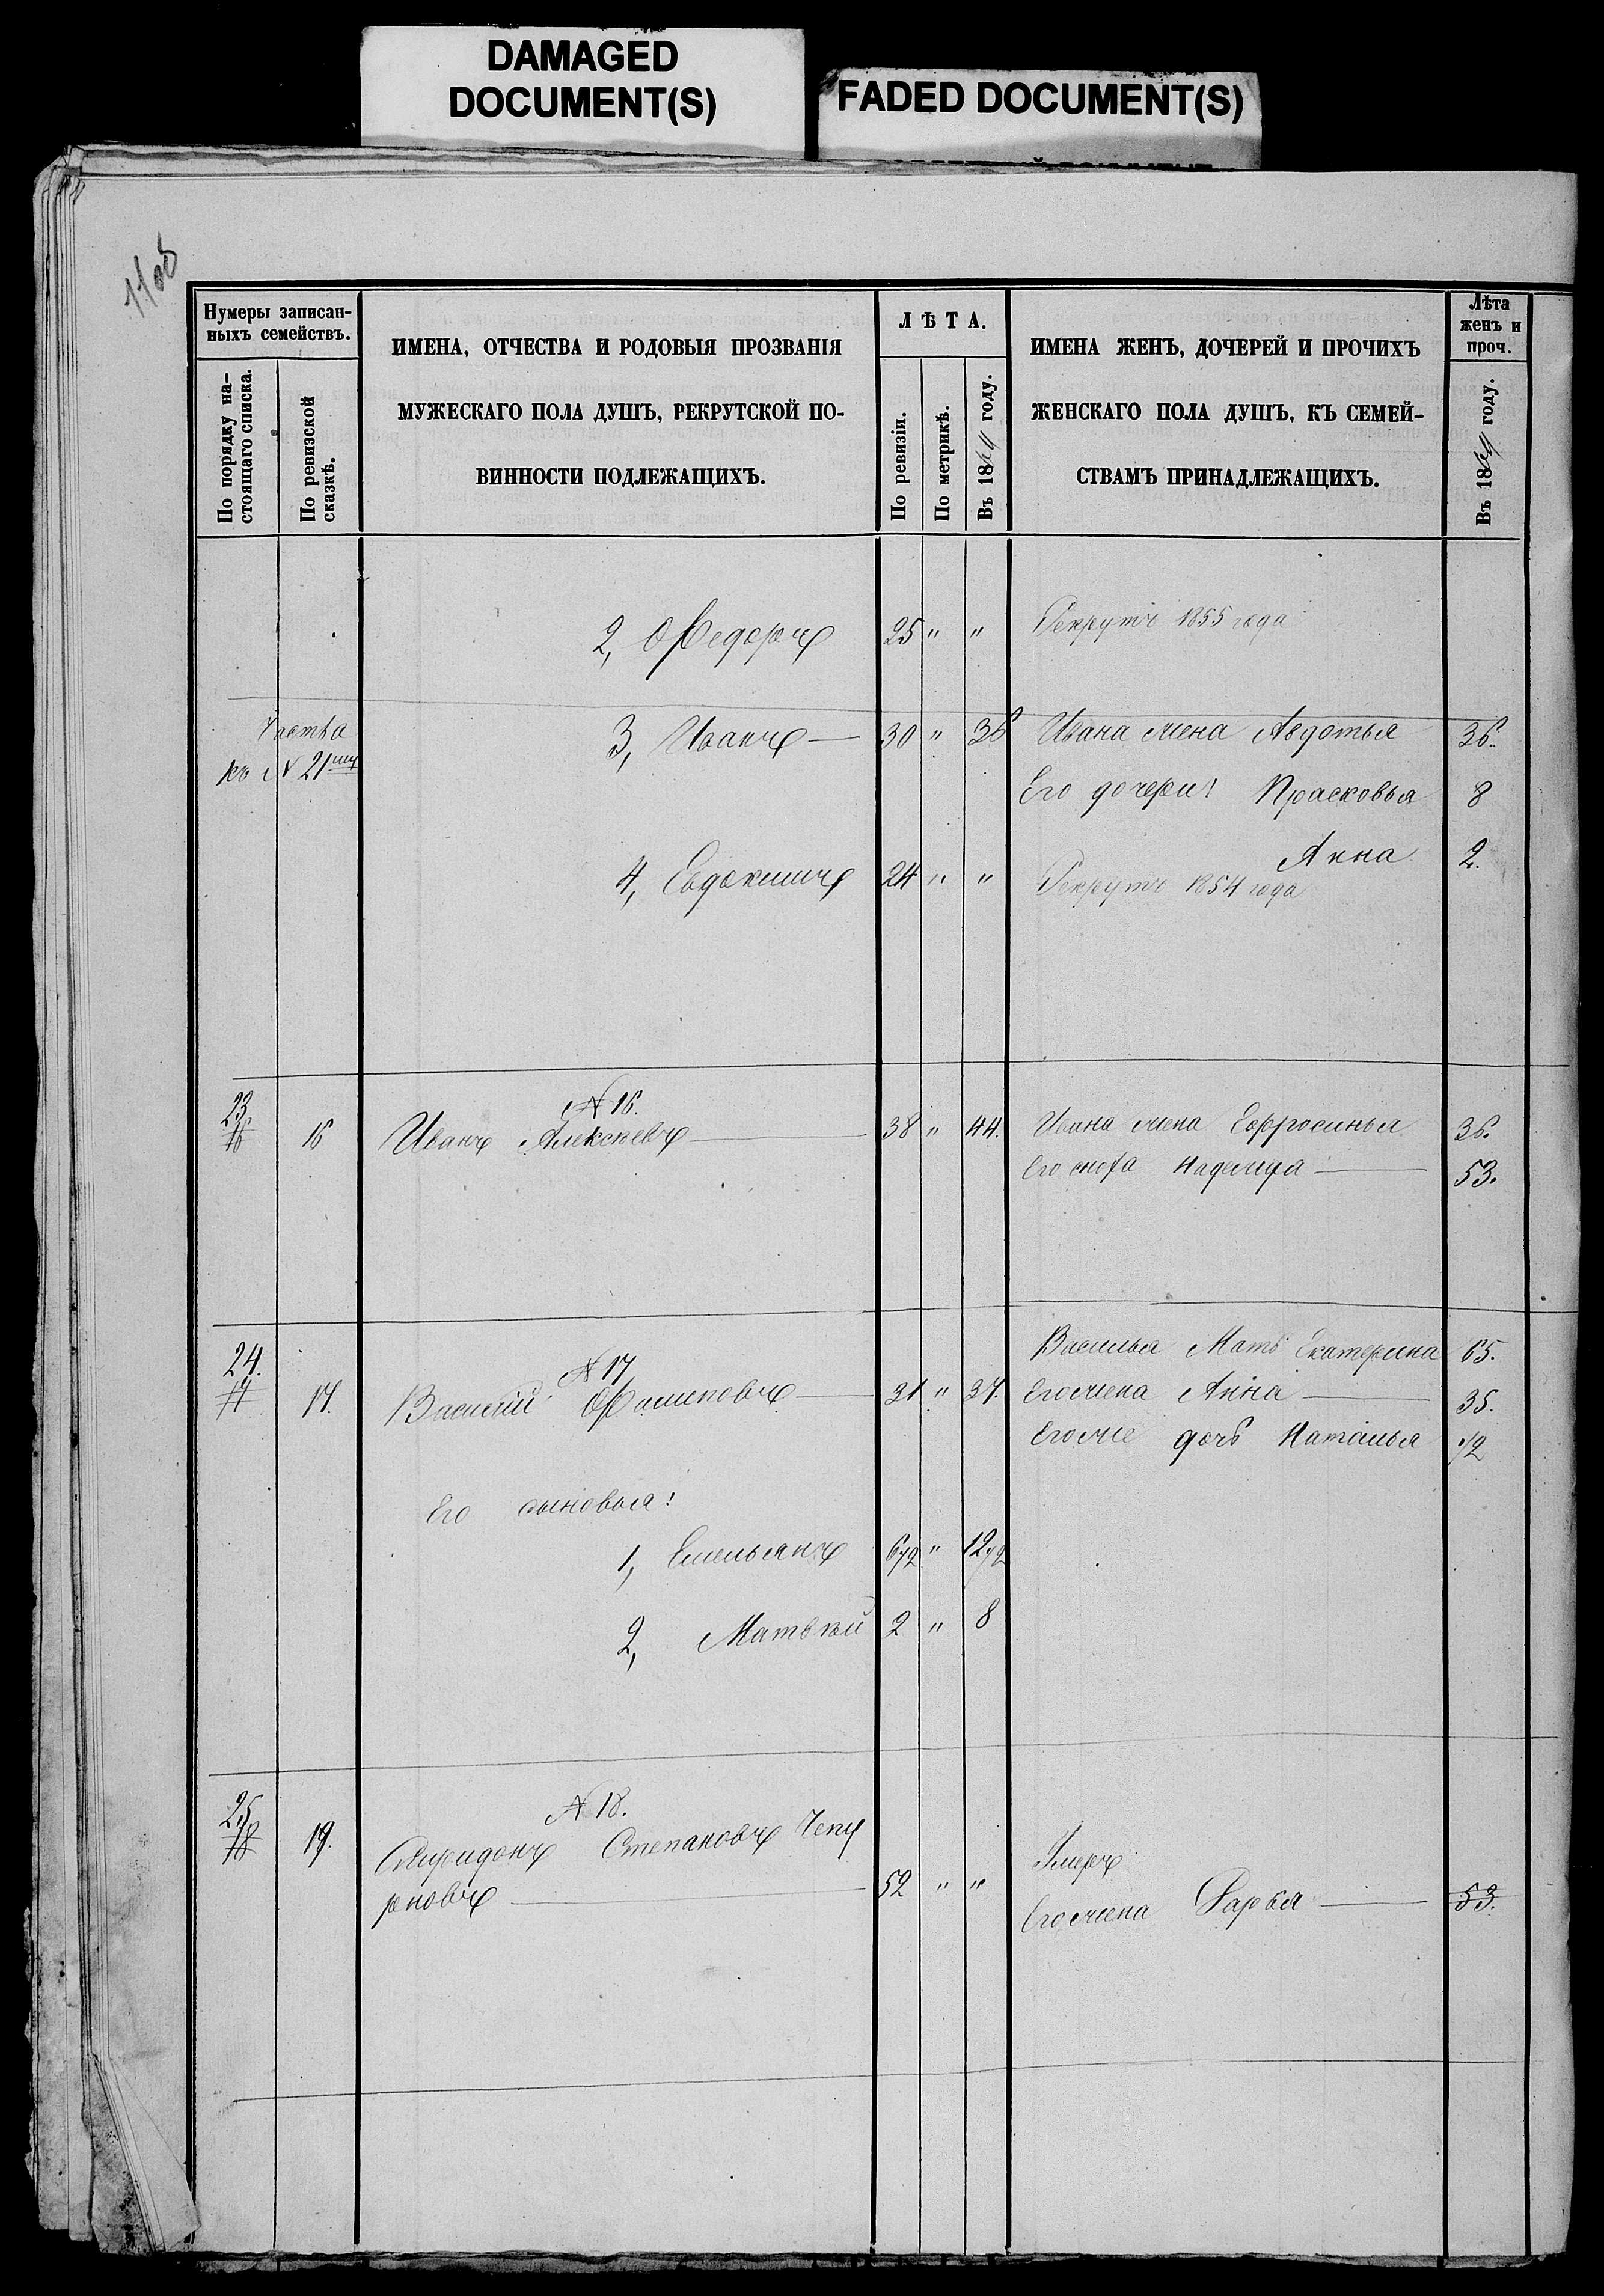 DAMAGED
DOCUMENT(S)
FADED DOCUMENT(S)
Нумеры записан-
ныхъ семействъ.
По порядку на-
стоящаго списка.
По ревизской
сказкѣ.
ИМЕНА, ОТЧЕСТВА И РОДОВЫЯ ПРОЗВАНІЯ
МУЖЕСКАГО ПОЛА ДУШЪ, РЕКРУТСКОЙ ПО-
ВИННОСТИ ПОДЛЕЖАЩИХЪ.
ЛѢТА.
По ревизіи.
По метрикѣ.
Въ 18 году.
ИМЕНА ЖЕНЪ, ДОЧЕРЕЙ И ПРОЧИХЪ
ЖЕНСКАГО ПОЛА ДУШЪ, КЪ СЕМЕЙ-
СТВАМЪ ПРИНАДЛЕЖАЩИХЪ.
Лѣта
женъ и
проч.
Въ 18 году.
2, Ѳедоръ 25 " " Рекрутъ 1855 года
къ N 21 3, Иванъ — 30 " 36 Ивана жена Авдотья 36.
Его дочери: Прасковья 8
Анна 2.
4, Евдокимъ 24 " " Рекрутъ 1854 года
N 16.
23 16 16 Иванъ Алексѣевъ — 38 " 44. Ивана жена Ефросинья 36.
Его сноха Надежда — 53.
Василья Мать Екатерина 65.
N 17
24. 17 17. Василій Филиповъ — 31 " 37. Его жена Анна — 35.
Его же дочь Наталья 1/2
Его сыновья:
1, Емельянъ 6 1/2 " 12 1/2
2, Матвѣй 2 " 8
N 18.
25 18 19. Спиридонъ Степановъ Чепу
рновъ — 52 " " Умеръ
Его жена Дарья — 53.